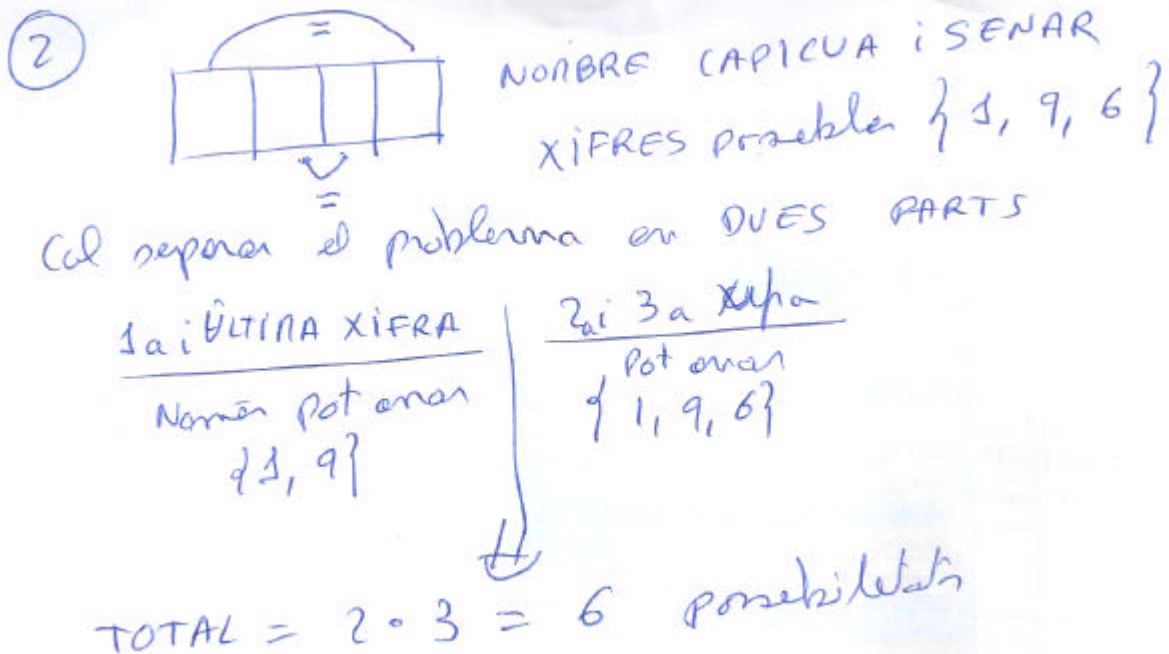 2
=
NOMBRE CAPICUA i SENAR
XIFRES possibles { 1, 9, 6 }
=
Cal separar el problema en DUES PARTS
1a i ÚLTIMA XIFRA
2a i 3a xifra
Només pot anar
{1, 9}
Pot anar
{ 1, 9, 6}
TOTAL = 2 · 3 = 6 possibilitats